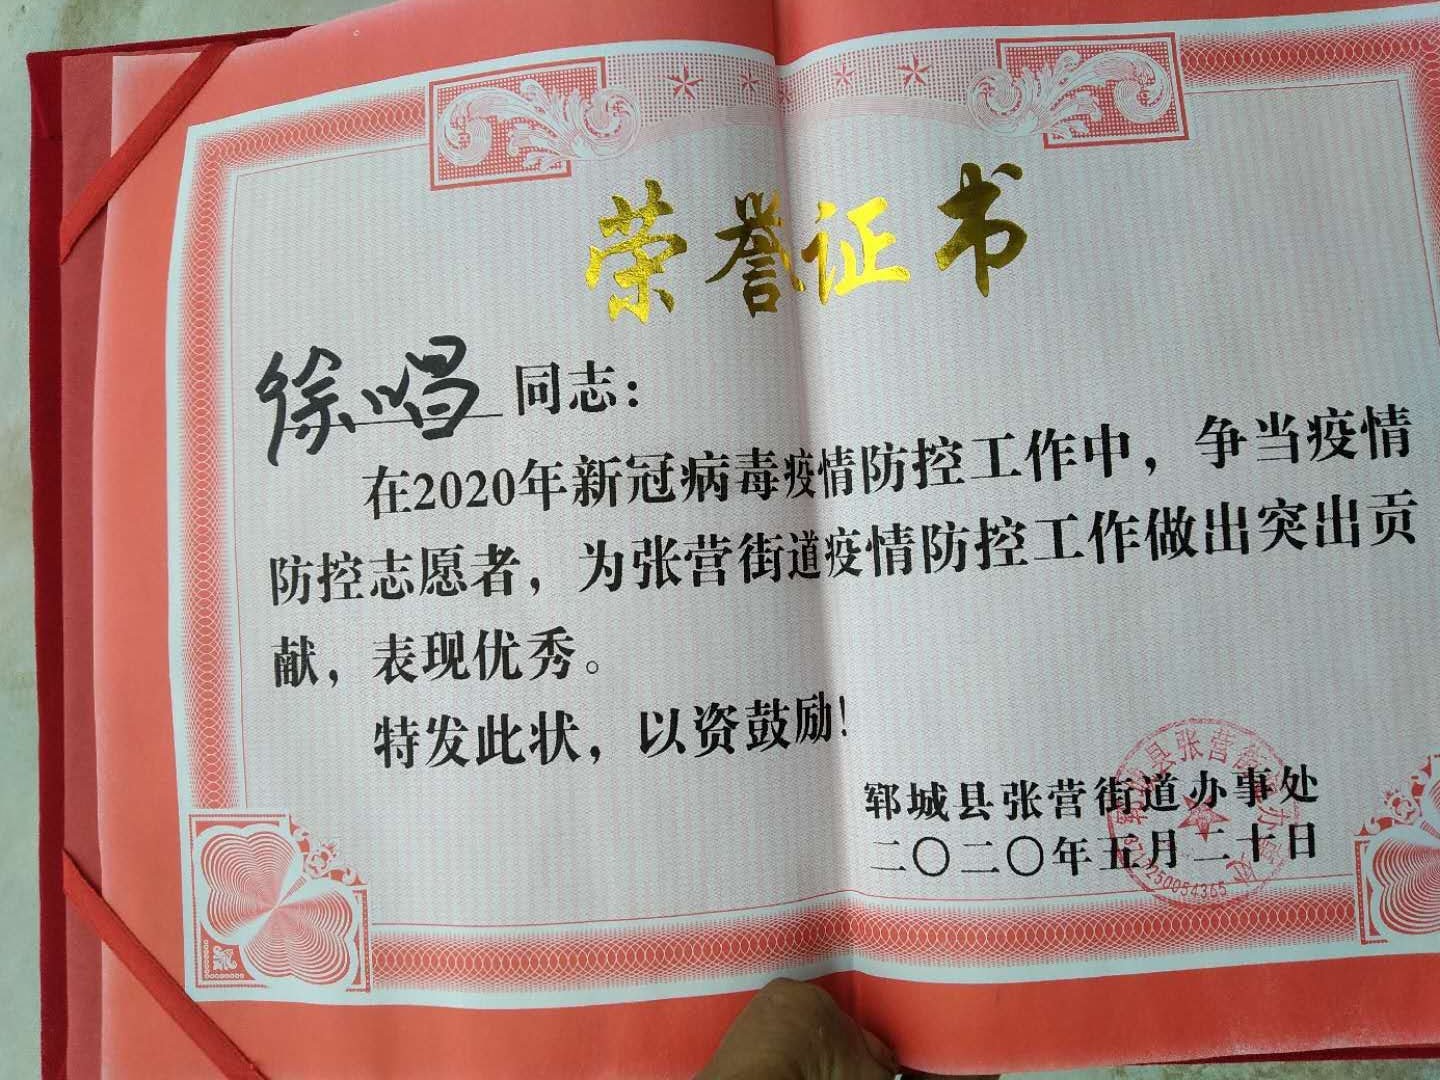 荣誉证书
徐唱 同志：
在2020年新冠病毒疫情防控工作中，争当疫情
防控志愿者，为张营街道疫情防控工作做出突出贡
献，表现优秀。
特发此状，以资鼓励！
郓城县张营街道办事处
二〇二〇年五月二十日